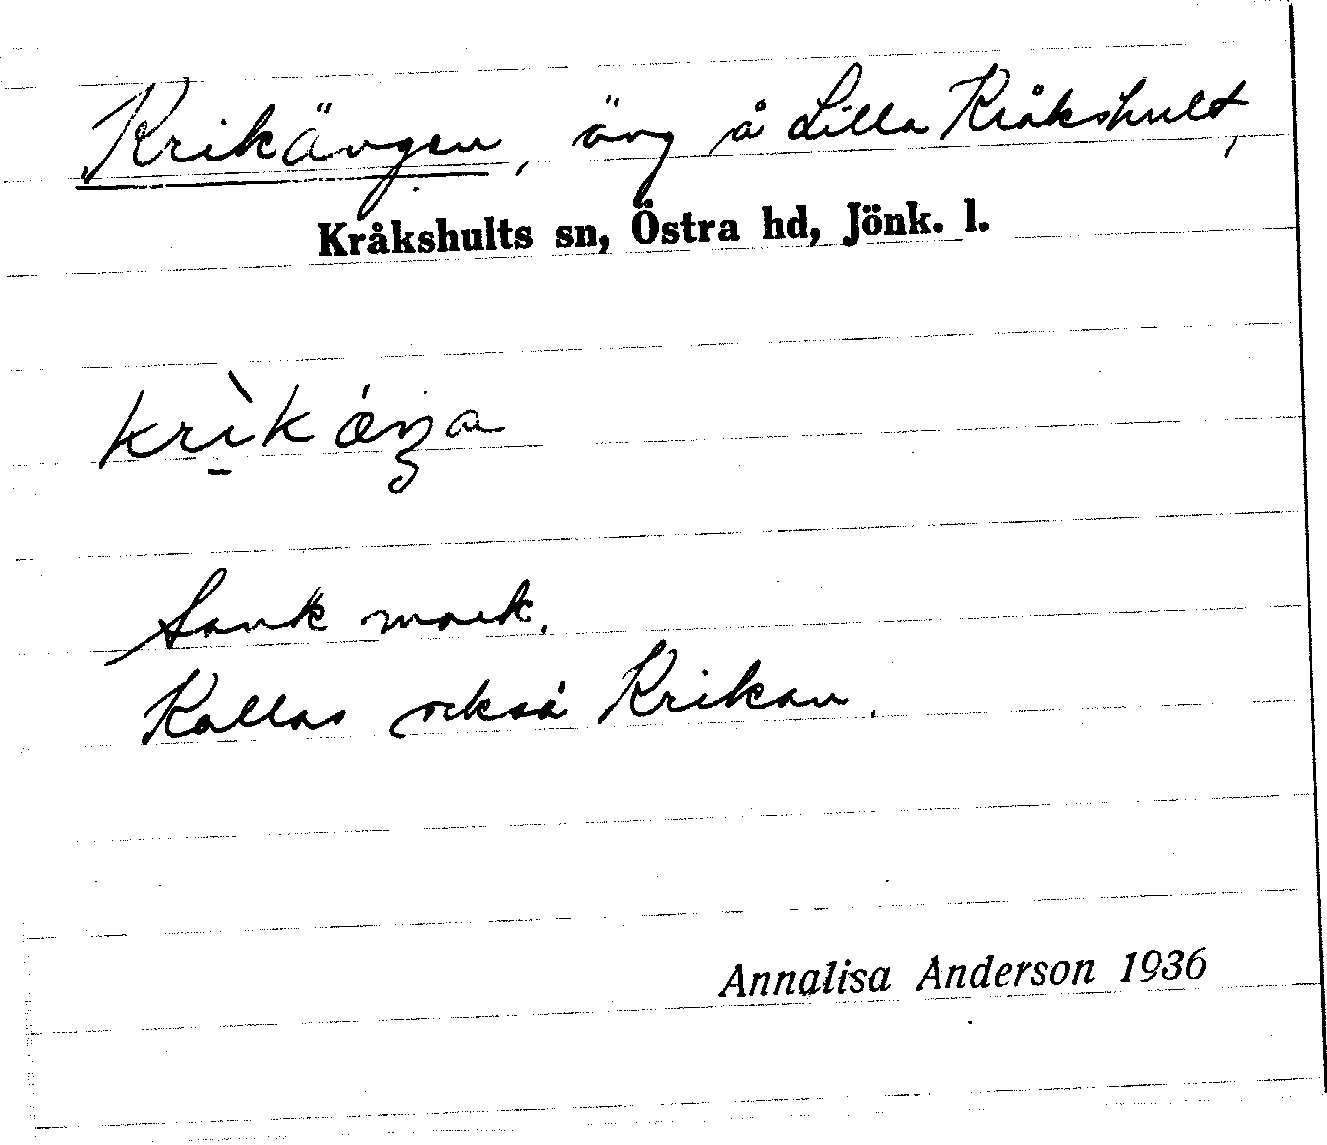 Krikängen, äng å Lilla Kråkshult,
Kråkshults sn, Östra hd, Jönk. l.
krı̀káŋa
Sank mark.
Kallas också Krikan.
Annalisa Anderson 1936